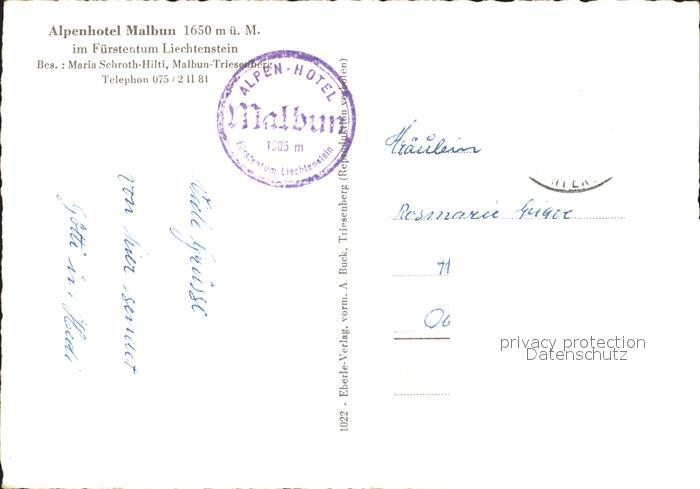 Alpenhotel Malbun 1650 m ü. M.
im Fürstentum Liechtenstein
Bes. : Maria Schroth-Hilti, Malbun-Triesenberg
Telephon 075 / 2 11 81
ALPEN-HOTEL
Malbun
1605 m
Fürstentum Liechtenstein
Viele Grüsse
von hier sendet
Götti u. Hedi
1022 - Eberle-Verlag, vorm. A. Buck, Triesenberg (Reproduktion verboten)
Fräulein
Rosmarie
H
Ob
privacy protection
Datenschutz